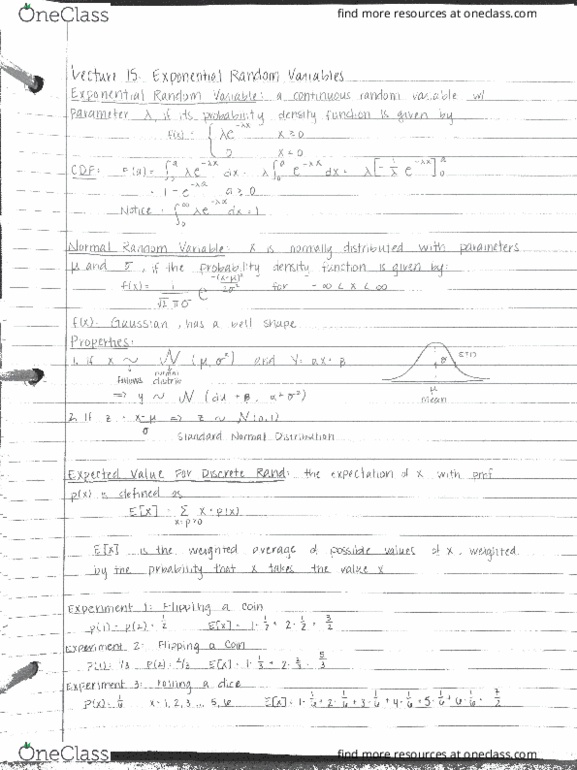 OneClass
find more resources at oneclass.com
Lecture 15: Exponential Random Variables
Exponential Random Variable: a continuous random variable w/
parameter λ, if its probability density function is given by
f(x) = { λe^-λx x ≥ 0
0 x < 0
CDF: F(a) = ∫_0^a λe^-λx dx = λ∫_0^a e^-λx dx = λ[-1/λ e^-λx]_0^a
= 1 - e^-λa a ≥ 0
Notice: ∫_0^∞ λe^-λx dx = 1
Normal Random Variable: X is normally distributed with parameters
μ and σ, if the probability density function is given by:
f(x) = 1/√2πσ e^-(x-μ)²/2σ² for -∞ < x < ∞
f(x): Gaussian, has a bell shape
Properties:
1. if X ~ N(μ, σ²) and Y = aX + β
follows normal distric
=> y ~ N(aμ + β, a² σ²)
μ
mean
2. If z = x-μ/σ => z ~ N(0,1)
Standard Normal Distribution
Expected Value For Discrete Rand: the expectation of x with pmf
p(x) is defined as
E[x] = Σ x · p(x)
x:p>0
E[x] is the weighted average of possible values of x, weighted
by the probability that x takes the value x
Experiment 1: Flipping a coin
p(1) = p(2) = 1/2 E[x] = 1·1/2 + 2·1/2 = 3/2
Experiment 2: Flipping a Coin
P(1) = 1/3 P(2) = 2/3 E[x] = 1·1/3 + 2·2/3 = 5/3
Experiment 3: a dice
P(x) = 1/6 x = 1, 2, 3 ... 5, 6 E[x] = 1·1/6 + 2·1/6 + 3·1/6 + 4·1/6 + 5·1/6 + 6·1/6 = 7/2
OneClass
find more resources at oneclass.com